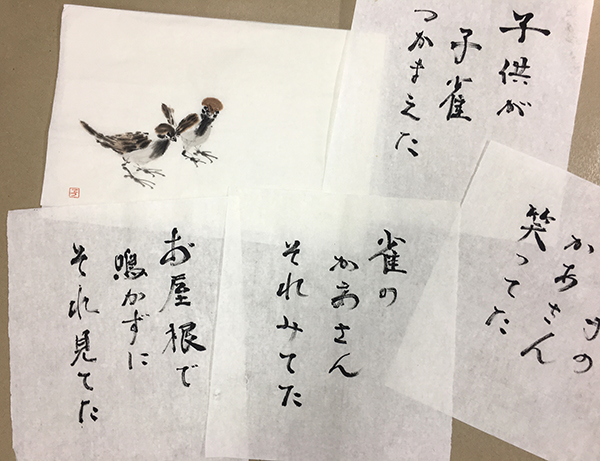 子供が
子雀
つかまえた
かあさん
笑ってた
雀の
かあさん
それみてた
お屋根で
鳴かずに
それ見てた